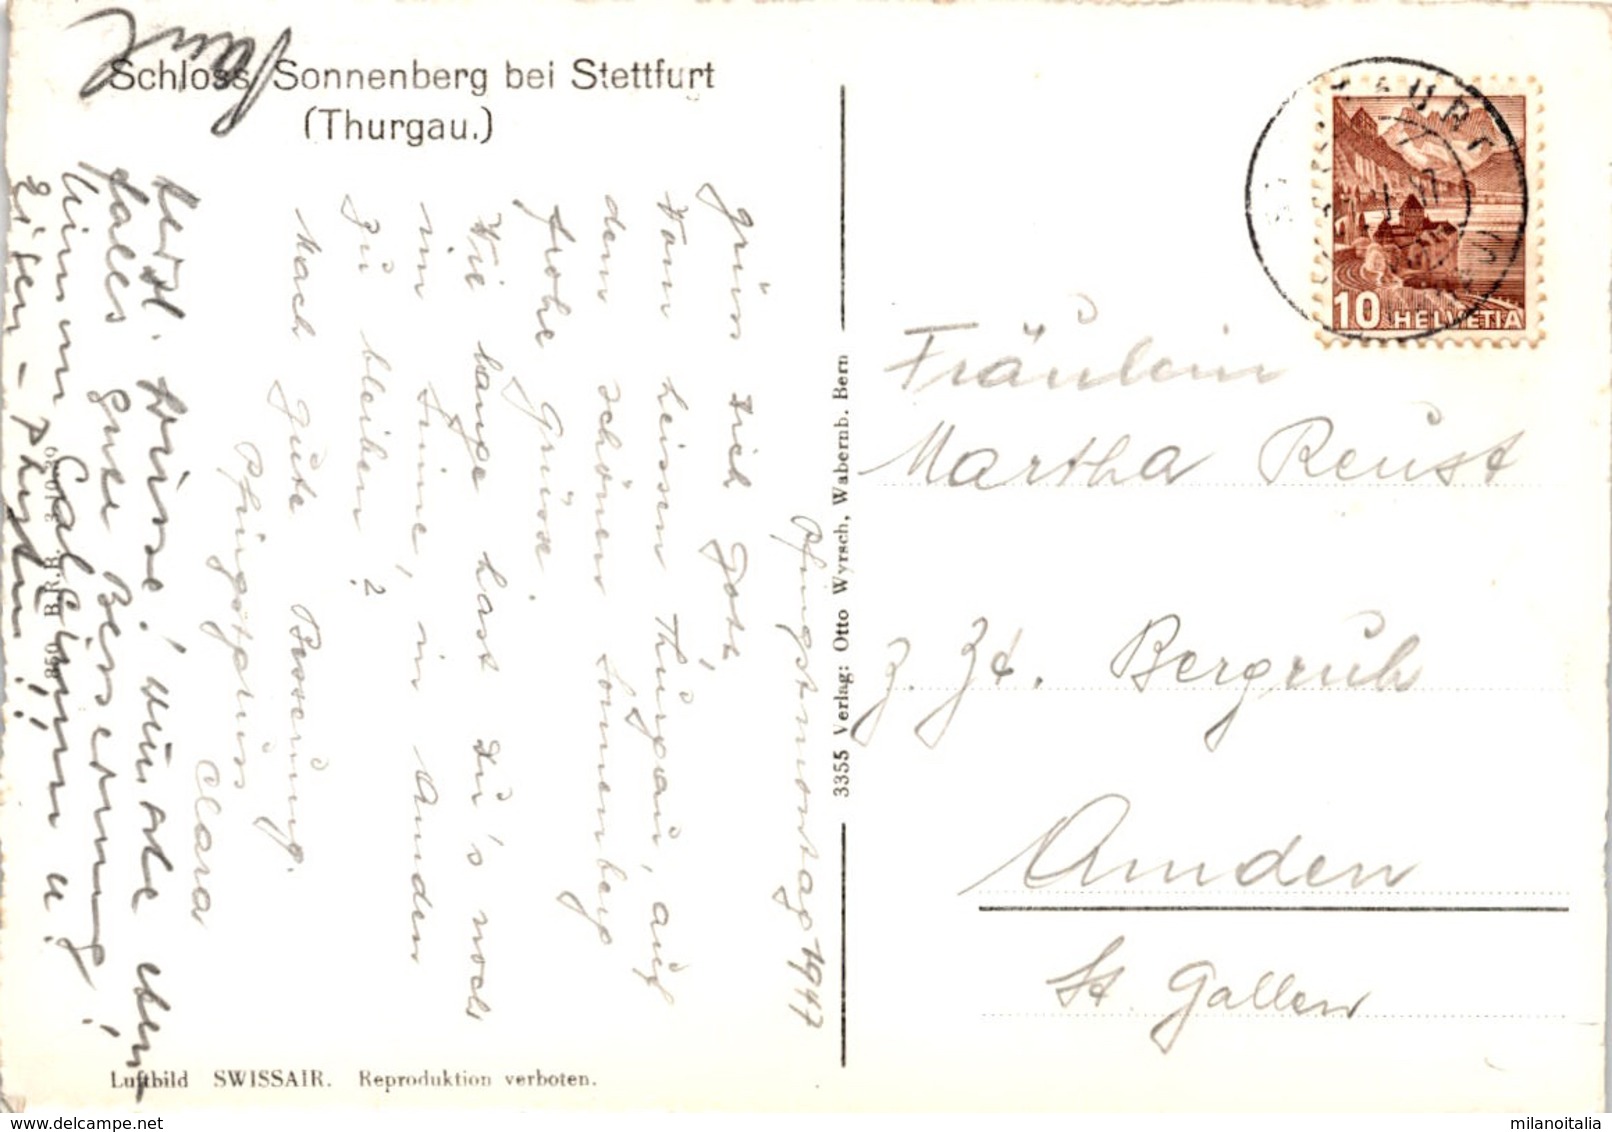 Schloss Sonnenberg bei Stettfurt
(Thurgau.)
Pfingstmontag 1947
Grüss Dich Gott,
Vom heissen Thurgau, auf
dem schönen Sonnenberg
frohe Grüsse.
Wie lange hast Du's noch
im Sinne, in Amden
zu bleiben?
Nach gute Besserung.
Pfingstgruss
Clara
herzl. Grüsse! wünsche eben-
falls gute Besserung!
Nimm Calcium u.
Eisen -
Paul
850 B.R.B. 3055
Luftbild SWISSAIR. Reproduktion verboten.
3355 Verlag: Otto Wyrsch, Wabernb. Bern
10 HELVETIA
Fräulein
Martha Reust
z. Zt. Bergruh
Amden
St. Gallen
www.delcampe.net
milanoitalia